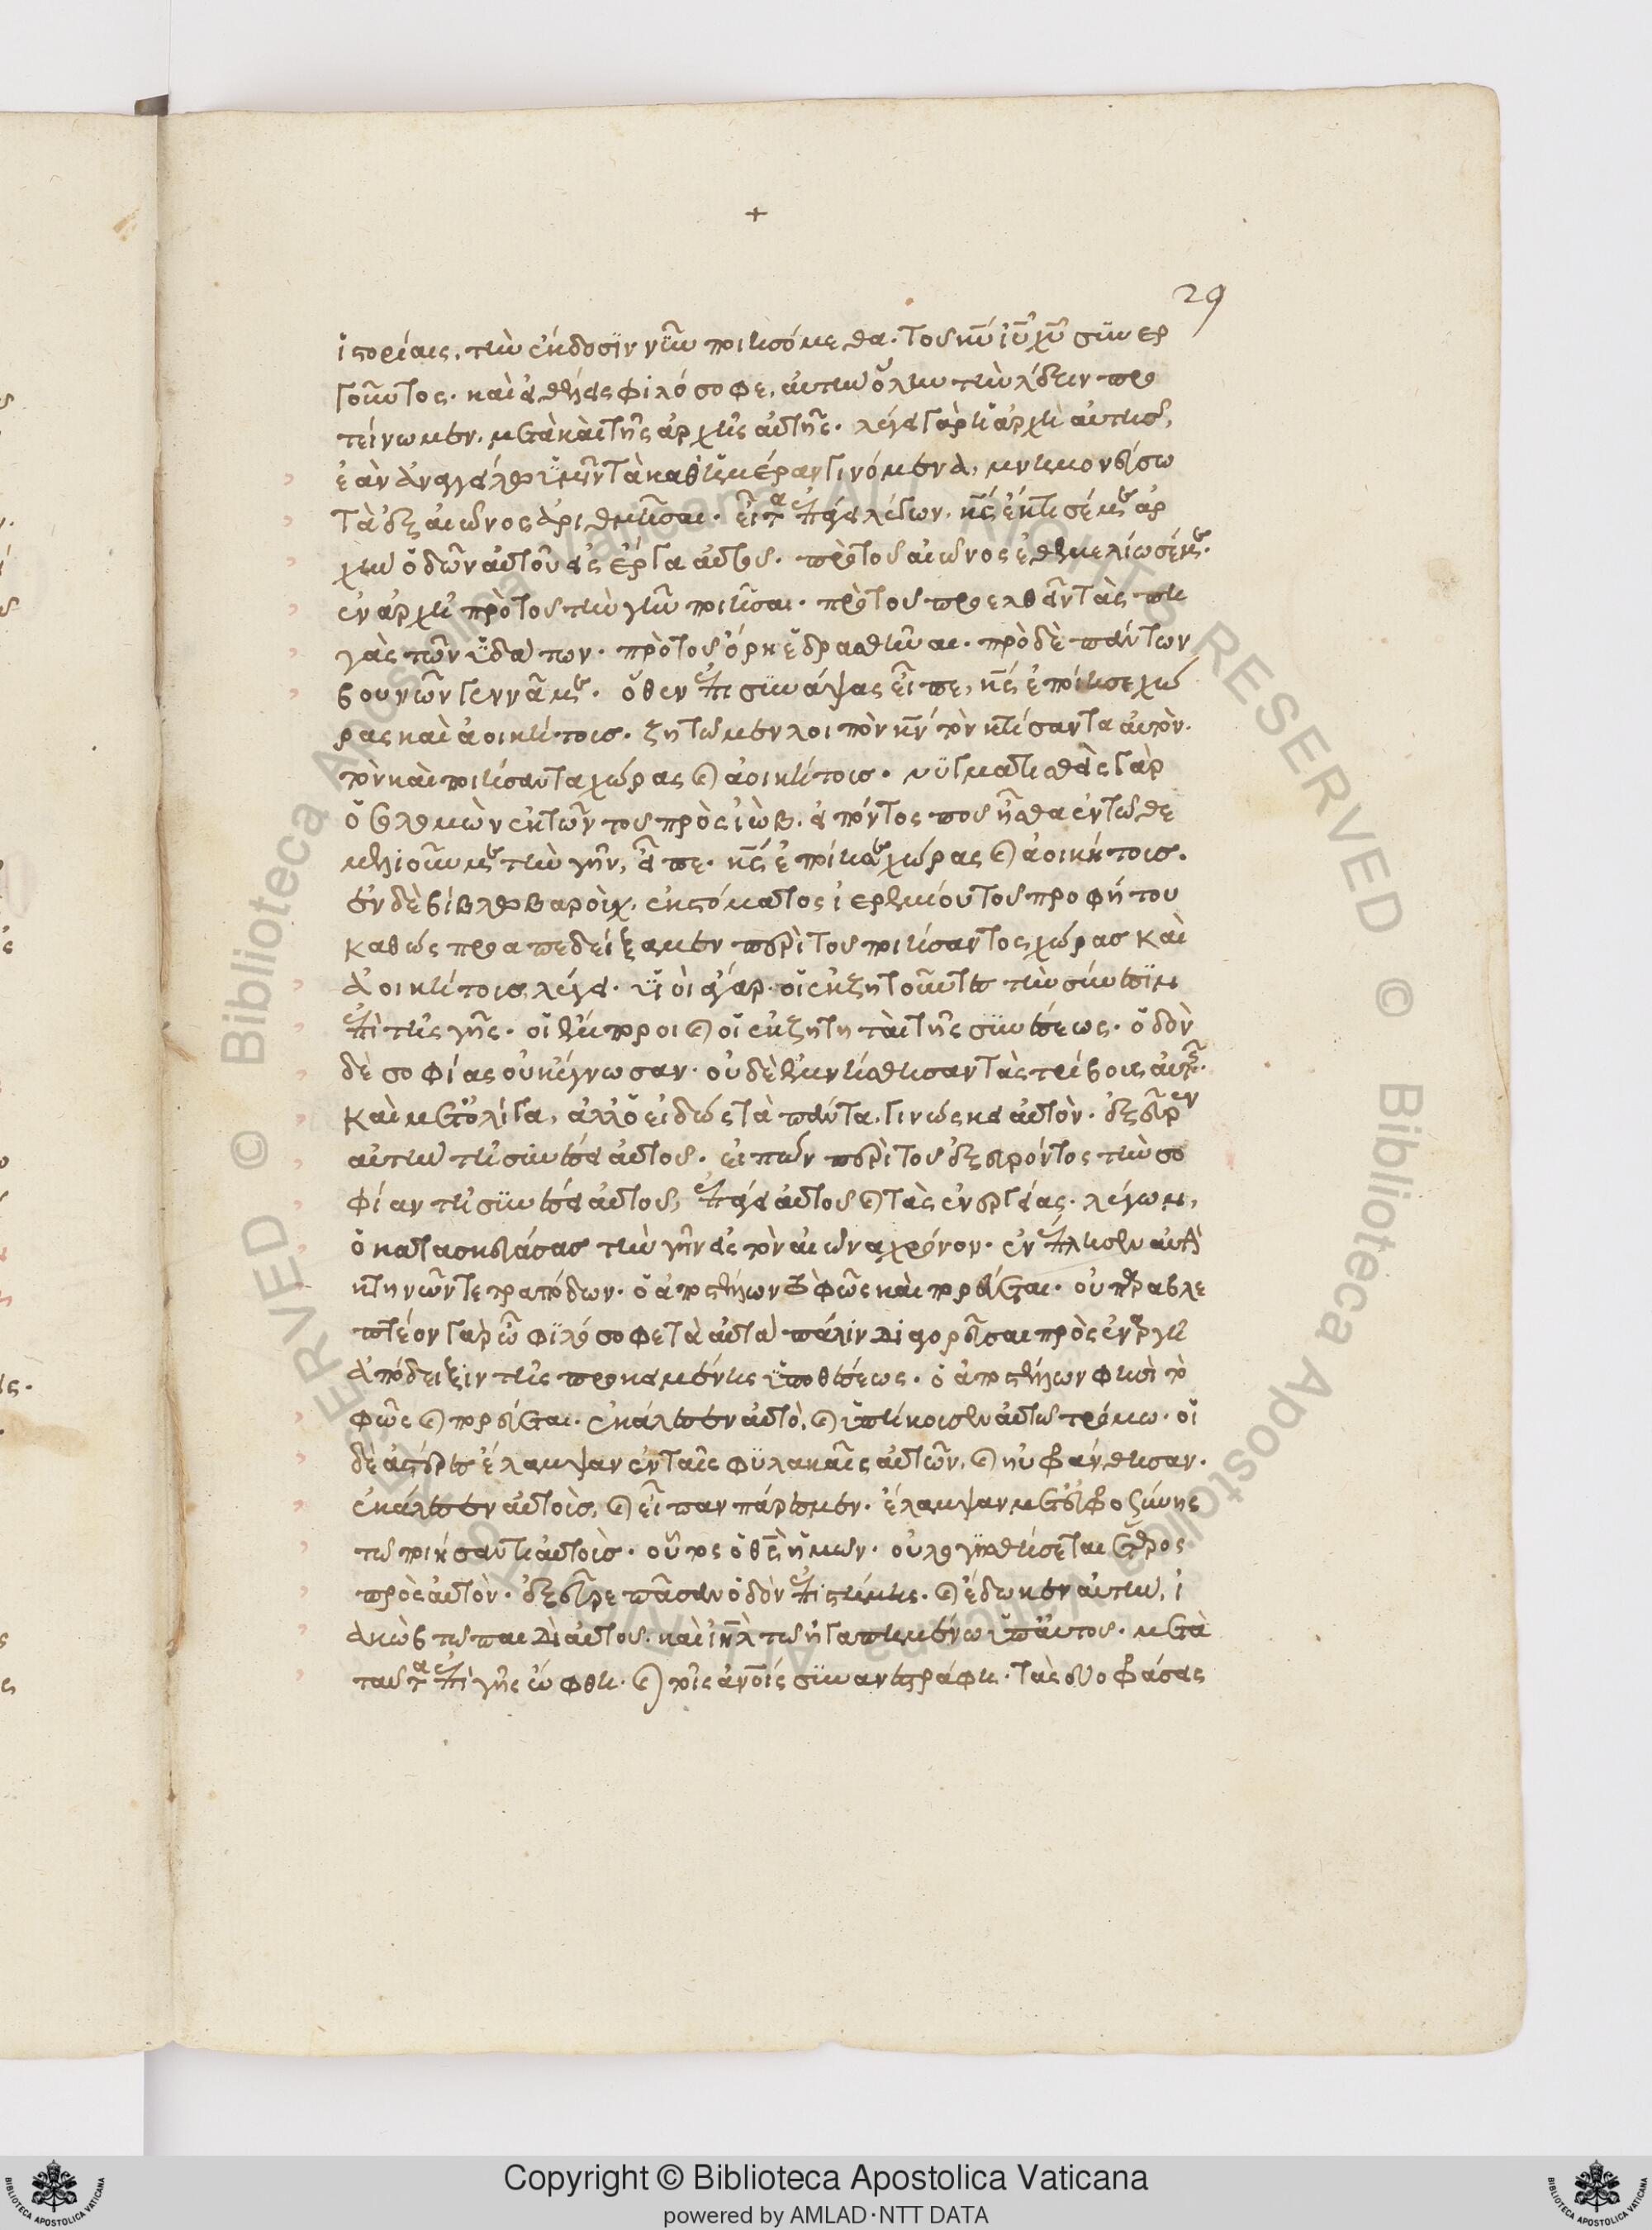 +
29
ἱστορίαις, τὴν ἔκδοσιν νῦν ποιησόμεθα. τοῦ κυ ἰυ χυ συνερ
γοῦντος. καὶ εἰ θέλεις φιλόσοφε, αὐτὴν ὅλην τὴν λέξιν προ
τείνωμεν. μετὰ καὶ τῆς ἀρχῆς αὐτῆς. λέγει γὰρ ἡ ἀρχὴ αὐτῆς,
ἐὰν ἀναγγείλω ὑμῖν τὰ καθ' ἡμέραν γινόμενα, μνημονεύσω
τὰ ἐξ αἰῶνος ἀριθμῆσαι. εἶτα ἐπάγει λέγων. κς ἔκτισέ με ἀρ
χὴν ὁδῶν αὐτοῦ εἰς ἔργα αὐτοῦ. πρὸ τοῦ αἰῶνος ἐθεμελίωσέ με.
ἐν ἀρχῇ πρὸ τοῦ τὴν γῆν ποιῆσαι. πρὸ τοῦ προελθεῖν τὰς πη
γὰς τῶν ὑδάτων. πρὸ τοῦ ὄρη ἑδρασθῆναι. πρὸ δὲ πάντων
βουνῶν γεννᾷ με. ὅθεν ἐπισυνάψας εἶπε, κς ἐποίησε χώ
ρας καὶ ἀοικήτοις. ζητῶμεν λοιπὸν κν τὸν κτίσαντα αὐτὸν.
τὸν καὶ ποιήσαντα χώρας καὶ ἀοικήτοις. νυγματισθεὶς γὰρ
ὁ σολομὼν ἐκ τῶν τοῦ πρὸς ἰὼβ. εἰπόντος ποῦ ἦσθα ἐν τῶ θε
μελιοῦν με τὴν γῆν, εἶπε. κς ἐποίησε χώρας καὶ ἀοικήτοις.
ἐν δὲ βίβλω βαροὺχ, ἐκ στόματος ἱερεμίου τοῦ προφήτου
καθὼς προαπεδείξαμεν περὶ τοῦ ποιήσαντος χώρας καὶ
ἀοικήτοις λέγει. υἱοὶ ἄγαρ. οἱ ἐκζητοῦντες τὴν σύνεσιν
ἐπὶ τῆς γῆς. οἱ ἔμποροι καὶ οἱ ἐκζητηταὶ τῆς συνέσεως. ὁδὸν
δὲ σοφίας οὐκ ἔγνωσαν. οὐδὲ ἐμνήσθησαν τὰς τρίβους αὐτῆς.
καὶ μετ' ὀλίγα, ἀλλ' ὁ εἰδὼς τὰ πάντα, γινώσκει αὐτὸν. ἐξεῦρεν
αὐτὴν τῇ συνέσει αὐτοῦ. εἰπὼν περὶ τοῦ ἐξευρόντος τὴν σο
φίαν τῇ συνέσει αὐτοῦ, ἐπάγει αὐτοῦ καὶ τὰς ἐνεργείας. λέγων,
ὁ κατασκευάσας τὴν γῆν εἰς τὸν αἰῶνα χρόνον. ἐνέπλησεν αὐτὴν
κτηνῶν τετραπόδων. ὁ ἀποστέλλων τὸ φῶς καὶ πορεύεται. οὐ παραβλε
πτέον γὰρ ὦ φιλόσοφε τὰ αὐτὰ πάλιν διαγορεῦσαι πρὸς ἐναργῆ
ἀπόδειξιν τῆς προκειμένης ὑποθέσεως. ὁ ἀποστέλλων φησὶ τὸ
φῶς καὶ πορεύεται. ἐκάλεσεν αὐτὸ, καὶ ὑπήκουσεν αὐτῶ τρόμω. οἱ
δὲ ἀστέρες ἔλαμψαν ἐν ταῖς φυλακαῖς αὐτῶν, καὶ ηὐφράνθησαν.
ἐκάλεσεν αὐτοὺς, καὶ εἶπαν πάρεσμεν. ἔλαμψαν μετ' εὐφροσύνης
τῶ ποιήσαντι αὐτοὺς. οὗτος ὁ θς ἡμῶν. οὐ λογισθήσεται ἕτερος
πρὸς αὐτὸν. ἐξεῦρε πᾶσαν ὁδὸν ἐπιστήμης. καὶ ἔδωκεν αὐτὴν, ἰ
ακὼβ τῶ παιδὶ αὐτοῦ. καὶ ἰηλ τῶ ἠγαπημένω ὑπ' αὐτοῦ. μετὰ
ταῦτα ἐπὶ γῆς ὤφθη. καὶ τοῖς ἀνοις συνανεστράφη. τὰς δύο φράσεις
Copyright © Biblioteca Apostolica Vaticana
powered by AMLAD·NTT DATA